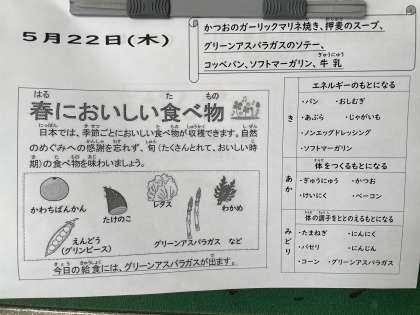 5月22日(木)
かつおのガーリックマリネ焼き、押麦のスープ、
グリーンアスパラガスのソテー、
コッペパン、ソフトマーガリン、牛乳
春においしい食べ物
日本では、季節ごとにおいしい食べ物が収穫できます。自然
のめぐみへの感謝を忘れず、旬(たくさんとれて、おいしい時
期)の食べ物を味わいましょう。
かわちばんかん
たけのこ
レタス
わかめ
えんどう
(グリンピース)
グリーンアスパラガス など
今日の給食には、グリーンアスパラガスが出ます。
エネルギーのもとになる
き
・パン ・おしむぎ
・あぶら ・じゃがいも
・ノンエッグドレッシング
・ソフトマーガリン
体をつくるもとになる
あか
・ぎゅうにゅう ・かつお
・けいにく ・ベーコン
体の調子をととのえるもとになる
みどり
・たまねぎ ・にんにく
・パセリ ・にんじん
・コーン ・グリーンアスパラガス